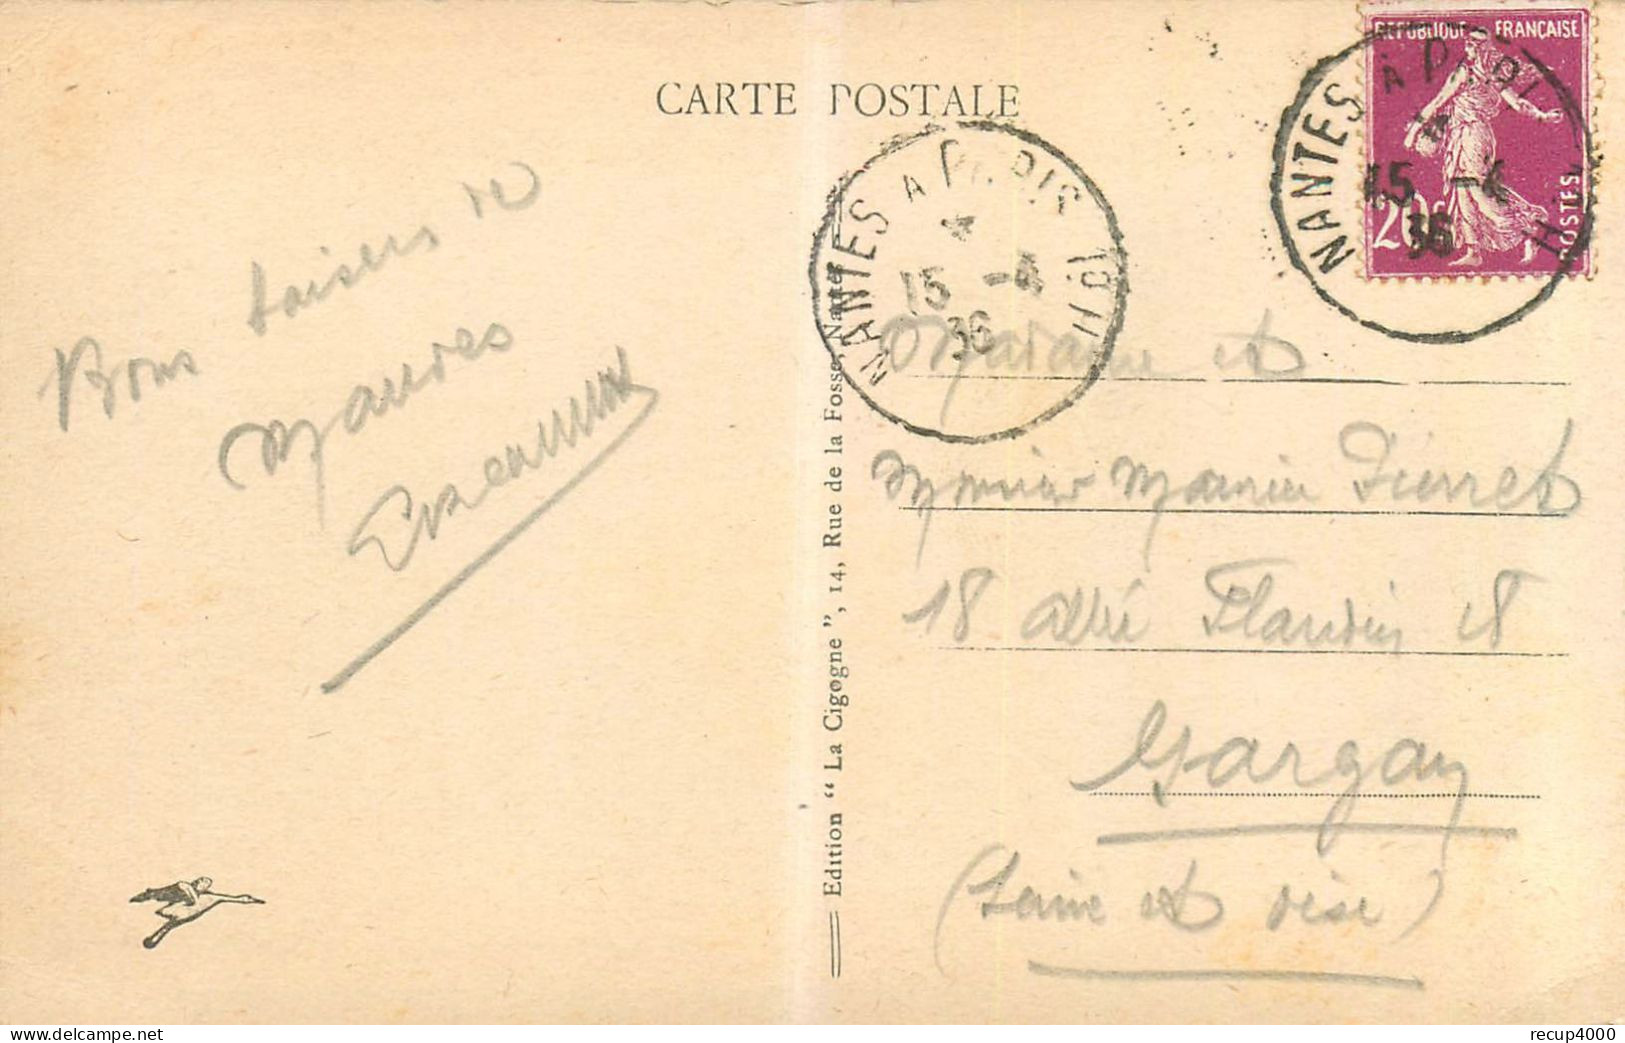 CARTE POSTALE
REPUBLIQUE FRANÇAISE
20c
POSTES
NANTES A PARIS
4
15 -4
36
NANTES A PARIS 1º H
4
15 -4
36
Bons baisers de
Mauves
Edition " La Cigogne ", 14, Rue de la Fosse, Nantes
Madame et
Monsieur Pierret
18 allée Flandrin 18
Gargan
(Seine et Oise)
recup4000